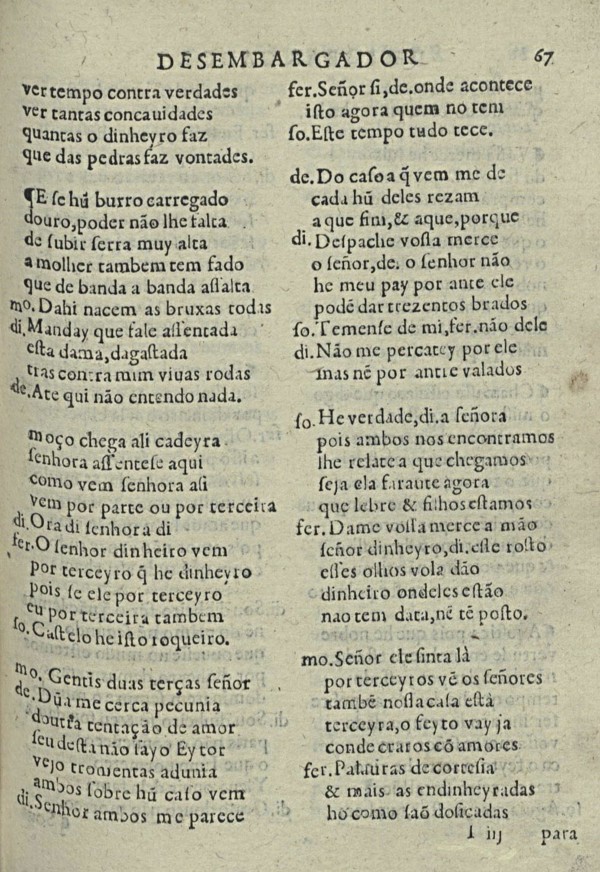 DESEMBARGADOR 67
ver tempo contra verdades
ver tantas concauidades
quantas o dinheyro faz
que das pedras faz vontades.
¶E ſe hũ burro carregado
douro, poder não lhe falta
de ſubir ſerra muy alta
a molher tambem tem fado
que de banda a banda aſſalta
mo. Dahi nacem as bruxas todas
di. Manday que fale aſſentada
eſta dama, dagaſtada
tras contra mim viuas rodas
de. Ate qui não entendo nada.
moço chega ali cadeyra
ſenhora aſſenteſe aqui
como vem ſenhora aſi
vem por parte ou por terceira
di. Ora di ſenhora di
fer. O ſenhor dinheiro vem
por terceyro q̃ he dinheyro
pois ſe ele por terceyro
eu por terceira tambem
ſo. Caſtelo he iſto roqueiro.
mo. Gentis duas terças ſeñor
de. Dũa me cerca pecunia
doutra tentação de amor
ſeu deſta não ſayo Eytor
vejo tromentas adunia
ambos ſobre hũ caſo vem
di. Senhor ambos me parece
fer. Señor ſi, de. onde acontece
iſto agora quem no tem
ſo. Eſte tempo tudo tece.
de. Do caſo a q̃ vem me de
cada hũ deles rezam
a que fim, & aque, porque
di. Deſpache voſſa merce
o ſeñor, de. o ſenhor não
he meu pay por ante ele
podẽ dar trezentos brados
ſo. Temenſe de mi, fer. não dele
di. Não me percatey por ele
mas nẽ por antre valados
ſo. He verdade, di. a ſeñora
pois ambos nos encontramos
lhe relate a que chegamos
ſeja ela faraute agora
que lebre & filhos eſtamos
fer. Dame voſſa merce a mão
ſeñor dinheyro, di. eſſe roſto
eſſes olhos vola dão
dinheiro ondeles eſtão
nao tem data, nẽ tẽ poſto.
mo. Señor ele ſinta là
por terceyros vẽ os ſeñores
tambẽ noſſa caſa eſtà
terceyra, o feyto vay ja
conde craros cõ amores
fer. Palauras de corteſia
& mais as endinheyradas
ho como ſaõ doſicadas
I iij para